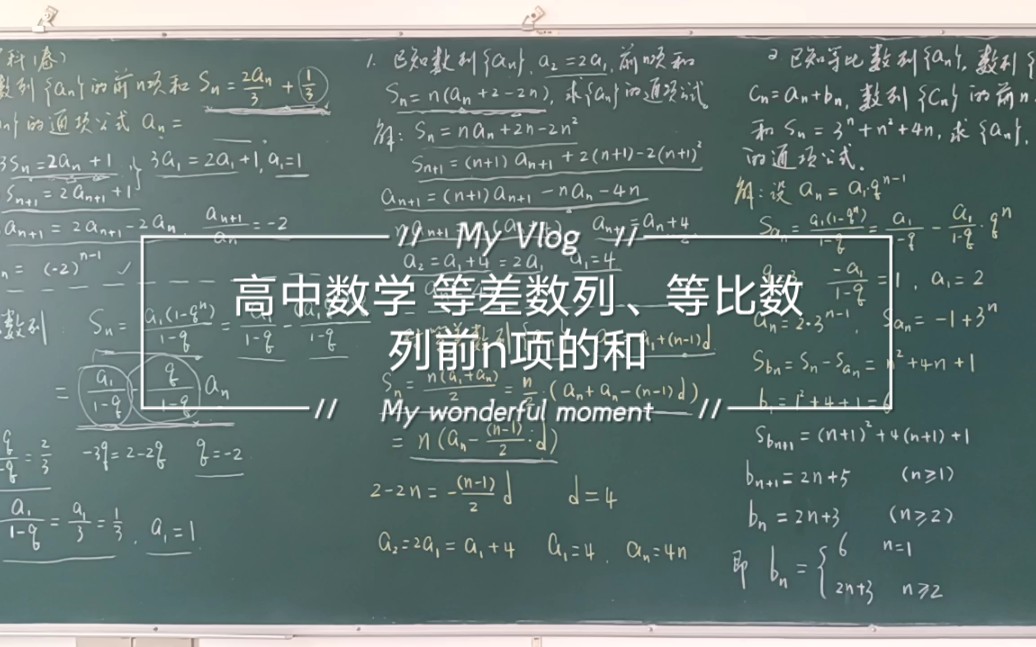 科1卷)
数列{an}的前n项和 Sn=2an/3+(1/3)
an}的通项公式 an=
3Sn=2an+1 } 3a1=2a1+1, a1=1
Sn+1=2an+1
an+1=2an+1-2an, an+1/an=-2
n=(-2)^(n-1) ✓
数列. Sn=a1(1-q^n)/1-q=
=a1/1-q q/1-q an
q/-q=2/3 -3q=2-2q q=-2
a1/1-q=a1/3=1/3, a1=1
1. 已知数列{an}, a2=2a1, 前n项和
Sn=n(an+2-2n), 求{an}的通项公式
解: Sn=nan+2n-2n²
Sn+1=(n+1)an+1+2(n+1)-2(n+1)²
an+1=(n+1)an+1-nan-4n
an+1=an+4
a2=a1+4=2a1 a1=4
a1+(n-1)d
Sn=n(a1+an)/2=n/2·(an+an-(n-1)d)
=n(an-(n-1)/2·d)
2-2n=-(n-1)/2 d d=4
a2=2a1=a1+4 a1=4, an=4n
2 已知等比数列{an}, 数列{
Cn=an+bn, 数列{Cn}的前n
和Sn=3^n+n²+4n, 求{an},
的通项公式.
解: 设 an=a1·q^(n-1)
San=a1(1-q^n)/1-q=a1/1-q-a1/1-q·q^n
-a1/1-q=1, a1=2
an=2·3^(n-1), San=-1+3^n
Sbn=Sn-San=n²+4n+1
b1=1²+4+1=6
Sbn+1=(n+1)²+4(n+1)+1
bn+1=2n+5 (n≥1)
bn=2n+3 (n≥2)
即 bn={6 n=1
2n+3 n≥2
My Vlog
高中数学 等差数列、等比数
列前n项的和
My wonderful moment